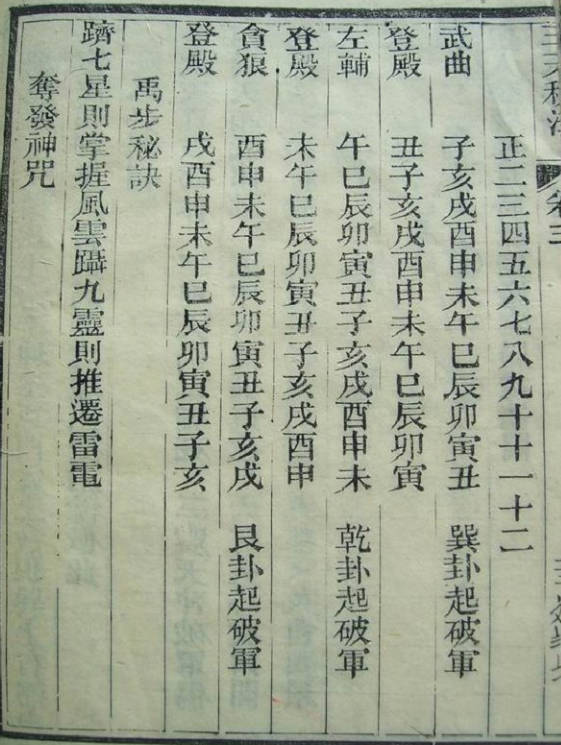 卷三
正二三四五六七八九十十一十二
武曲 子亥戌酉申未午巳辰卯寅丑 巽卦起破軍
登殿 丑子亥戌酉申未午巳辰卯寅
左輔 午巳辰卯寅丑子亥戌酉申未 乾卦起破軍
登殿 未午巳辰卯寅丑子亥戌酉申
貪狼 酉申未午巳辰卯寅丑子亥戌 艮卦起破軍
登殿 戌酉申未午巳辰卯寅丑子亥
禹步秘訣
躋七星則掌握風雲躡九靈則推遷雷電
奪發神咒